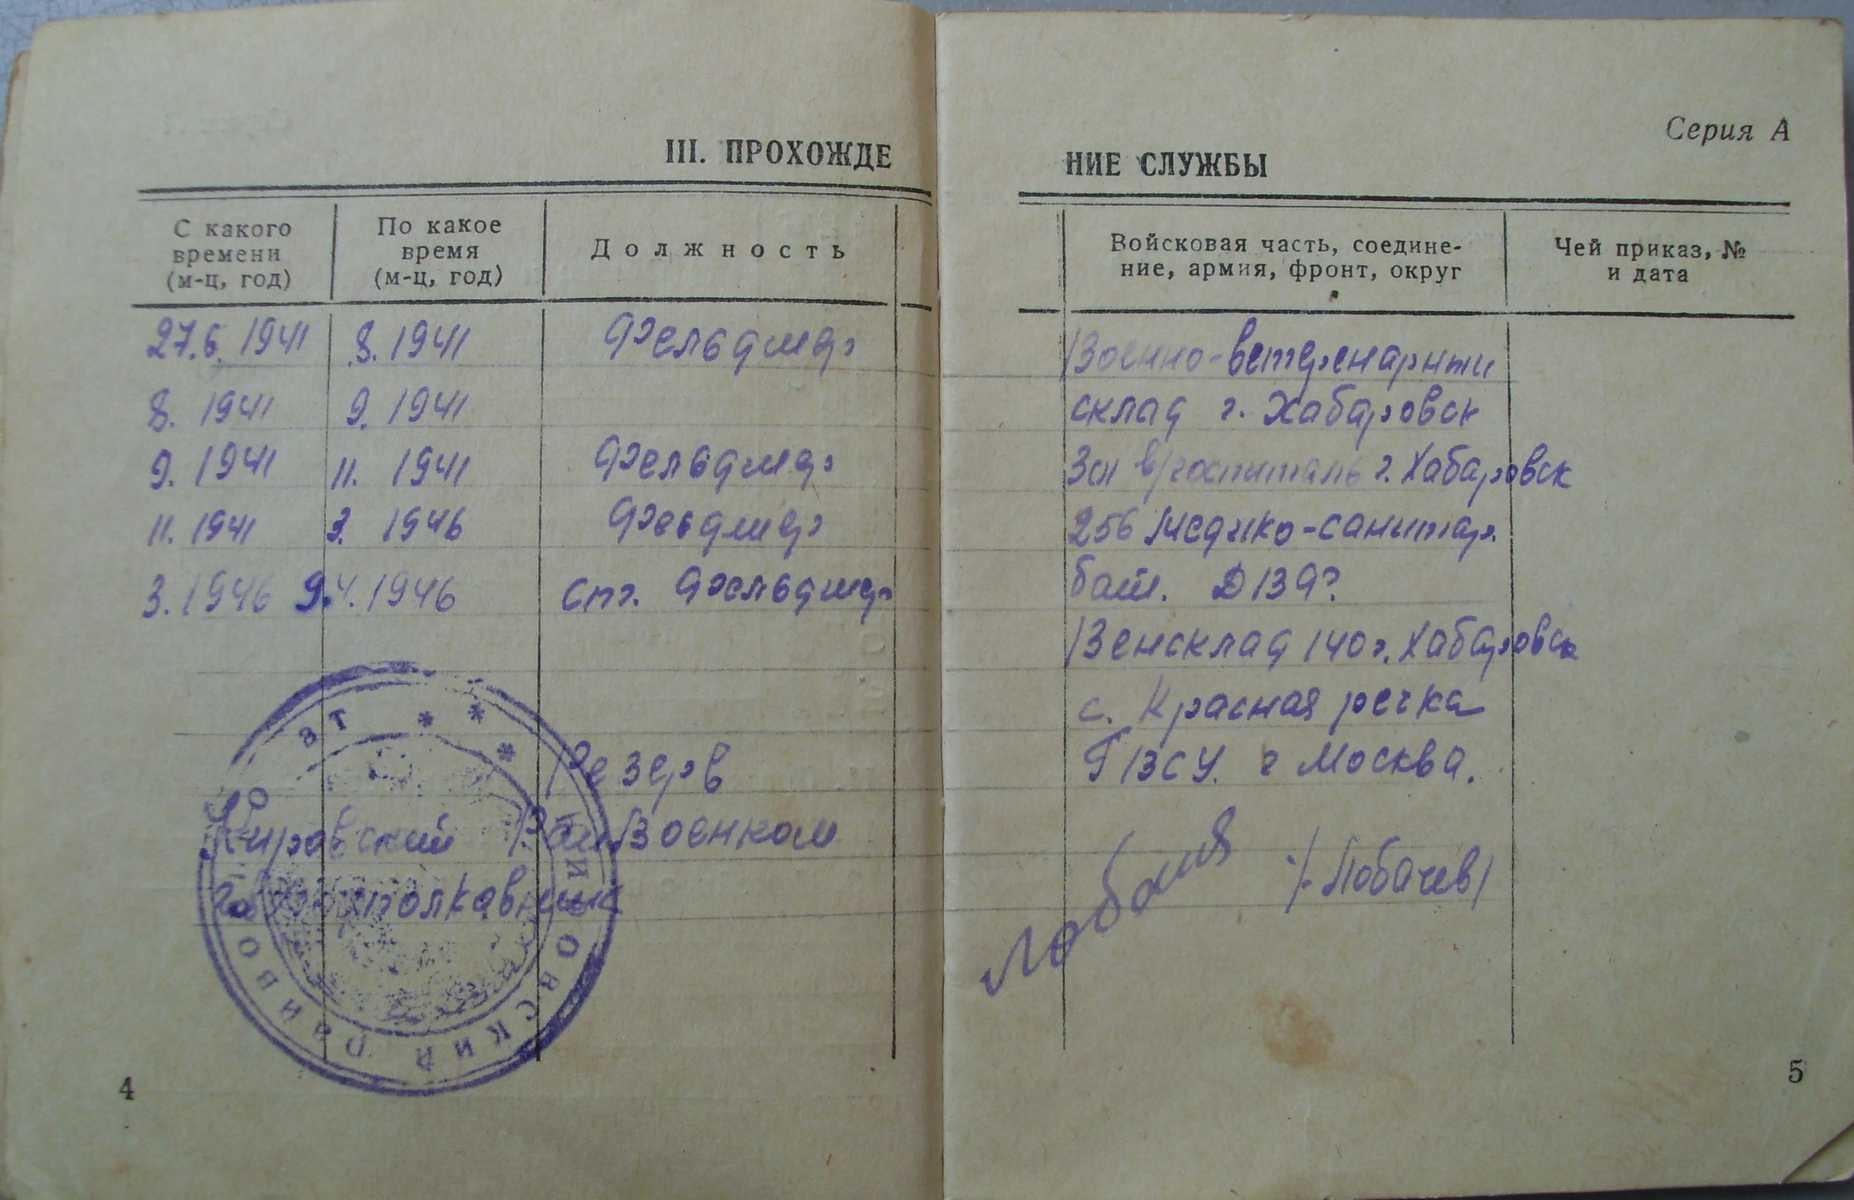 Серия А
III. ПРОХОЖДЕ
НИЕ СЛУЖБЫ
С какого времени (м-ц, год)
По какое время (м-ц, год)
Должность
Войсковая часть, соедине-
ние, армия, фронт, округ
Чей приказ, №
и дата
27.6. 1941 8. 1941 Фельдшер
8. 1941 9. 1941
9. 1941 11. 1941 Фельдшер
11. 1941 3. 1946 Феьдшер
3. 1946 9.4. 1946 Ст. Фельдшер
Резерв
Кировский РайВоенком
подполковник
Военно-ветеренарнти
склад г. Хабаровск
госпиталь г. Хабаровск
256 Медико-санитар.
бат.
склад 140 г. Хабаровск
с. Красная речка
ГВСУ. г Москва.
/Лобачев/
КИРОВСКИЙ РАЙВО
4
5